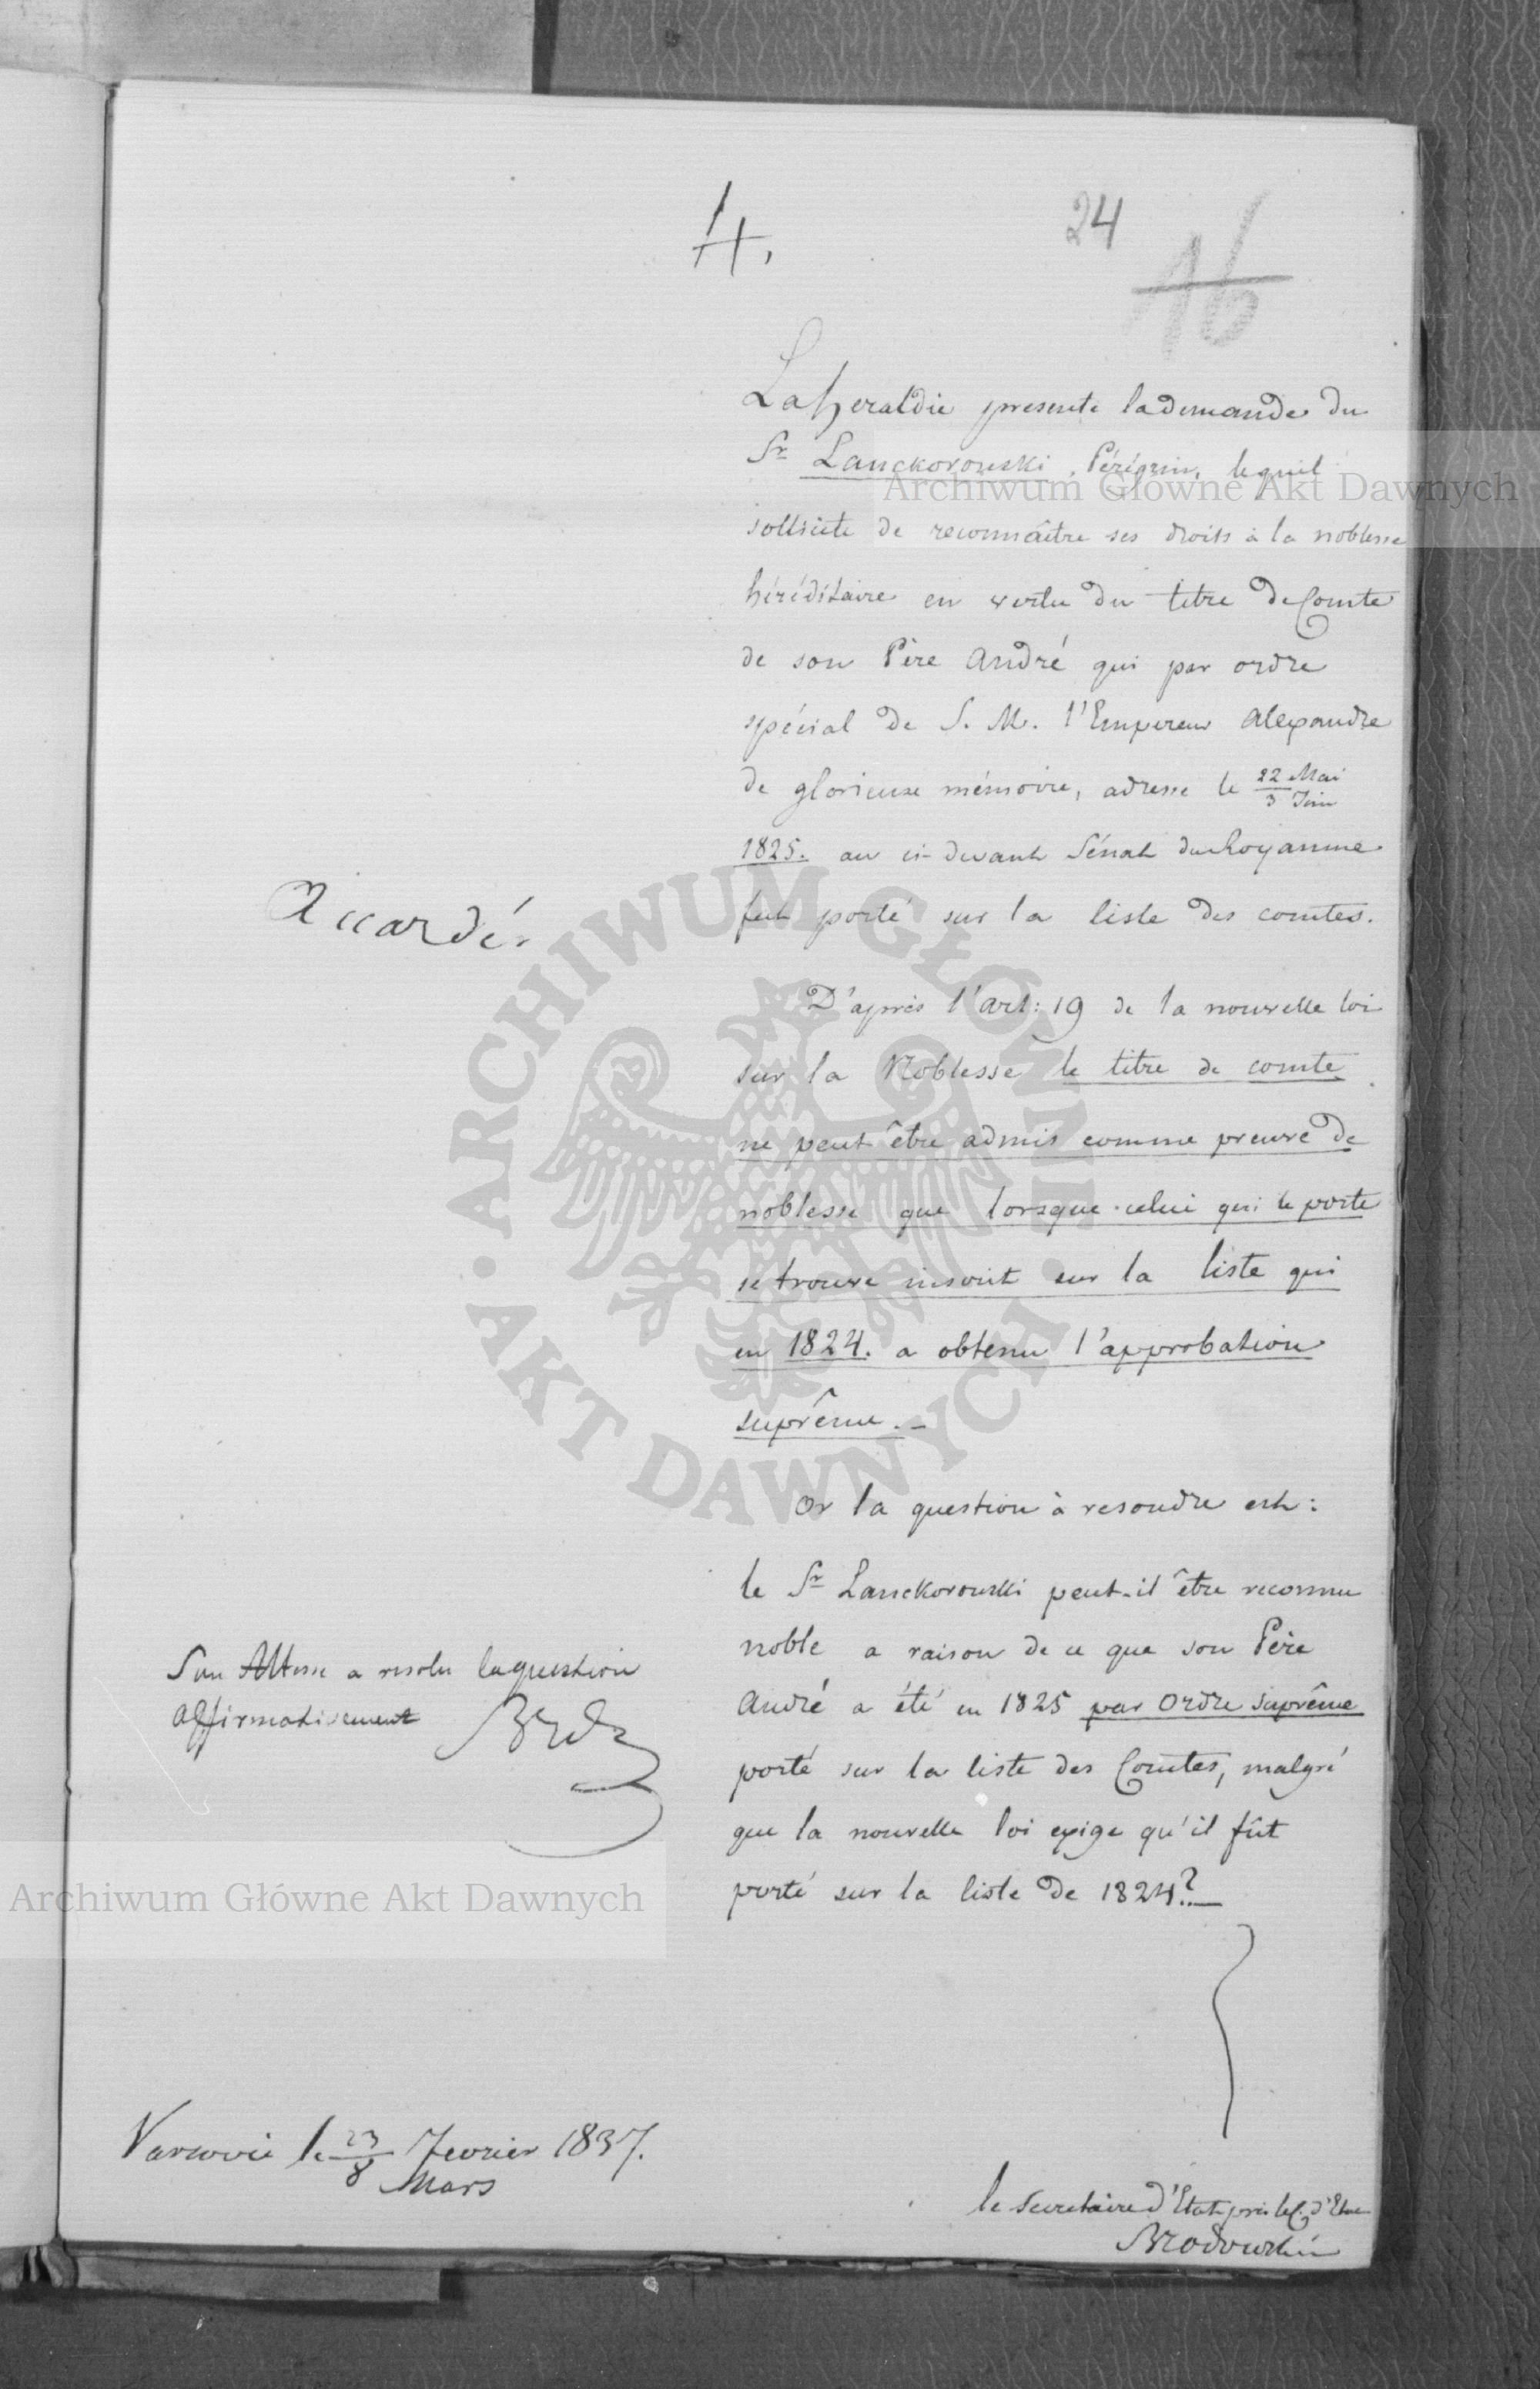 4.
24
16
La heraldie presente la demande du
Sr Lanckoronski Pérégrin, lequel
sollicite de reconnaître ses droits à la noblesse
héréditaire en vertu du titre de Comte
de son Père André qui par ordre
spécial de S. M. l'Empereur Alexandre
de glorieuse mémoire, adressé le 22 Mai
3 Juin
1825. au ci-devant Sénat du Royaume
fut porté sur la liste des comtes.
Accordé.
D'après l'art: 19 de la nouvelle loi
sur la Noblesse le titre de comte
ne peut être admis comme preuve de
noblesse que lorsque celui qui le porte
se trouve inscrit sur la liste qui
en 1824. a obtenu l'approbation
suprême. -
Or la question à resoudre est:
le Sr Lanckoronski peut-il être reconnu
noble a raison de ce que son Père
André a été en 1825 par Ordre suprême
porté sur la liste des Comtes, malgré
que la nouvelle loi exige qu'il fût
porté sur la liste de 1824?
Son Altesse a resolu la question
affirmativement
Varsovie le 23 Fevrier 1837.
8 Mars
le Secretaire d'Etat près le C. d'Etat
Brodowski
Archiwum Główne Akt Dawnych
ARCHIWUM GŁÓWNE AKT DAWNYCH
Archiwum Główne Akt Dawnych